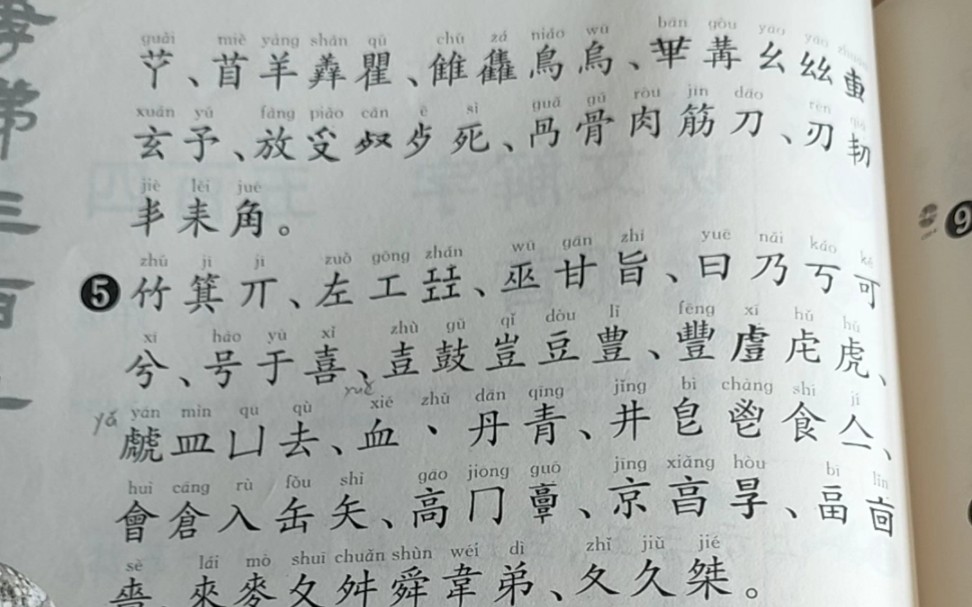 guǎi miè yáng shān qú chú zá niǎo wū bān gòu yāo yōu zhuān
𦫳、苜羊羴瞿、雔雥鳥烏、𠦒冓幺𢆶叀
xuán yǔ fàng piào cán è sǐ guǎ gǔ ròu jīn dāo rèn qià
玄予、放𠬪𣦼歺死、冎骨肉筋刀、刃㓞
jiè lěi jué
丯耒角。
zhú jī jī zuǒ gōng zhǎn wū gān zhǐ yuē nǎi kǎo kě
❺ 竹箕丌、左工㠭、巫甘旨、曰乃丂可
xī háo yú xǐ zhù gǔ qǐ dòu lǐ fēng xī hū hǔ
兮、号于喜、壴鼓豈豆豊、豐䖒虍虎、
yán mǐn qū qù xiě zhǔ dān qīng jǐng bì chàng shí jí
虤皿凵去、血丶丹青、井皀鬯食亼、
huì cāng rù fǒu shǐ gāo jiōng guō jīng xiǎng hòu bì lǐn
會倉入缶矢、高冂𩫏、京亯㫗、畐㐭
sè lái mò shuī chuǎn shùn wéi dì zhǐ jiǔ jié
嗇、來麥夊舛舜韋弟、夂久桀。